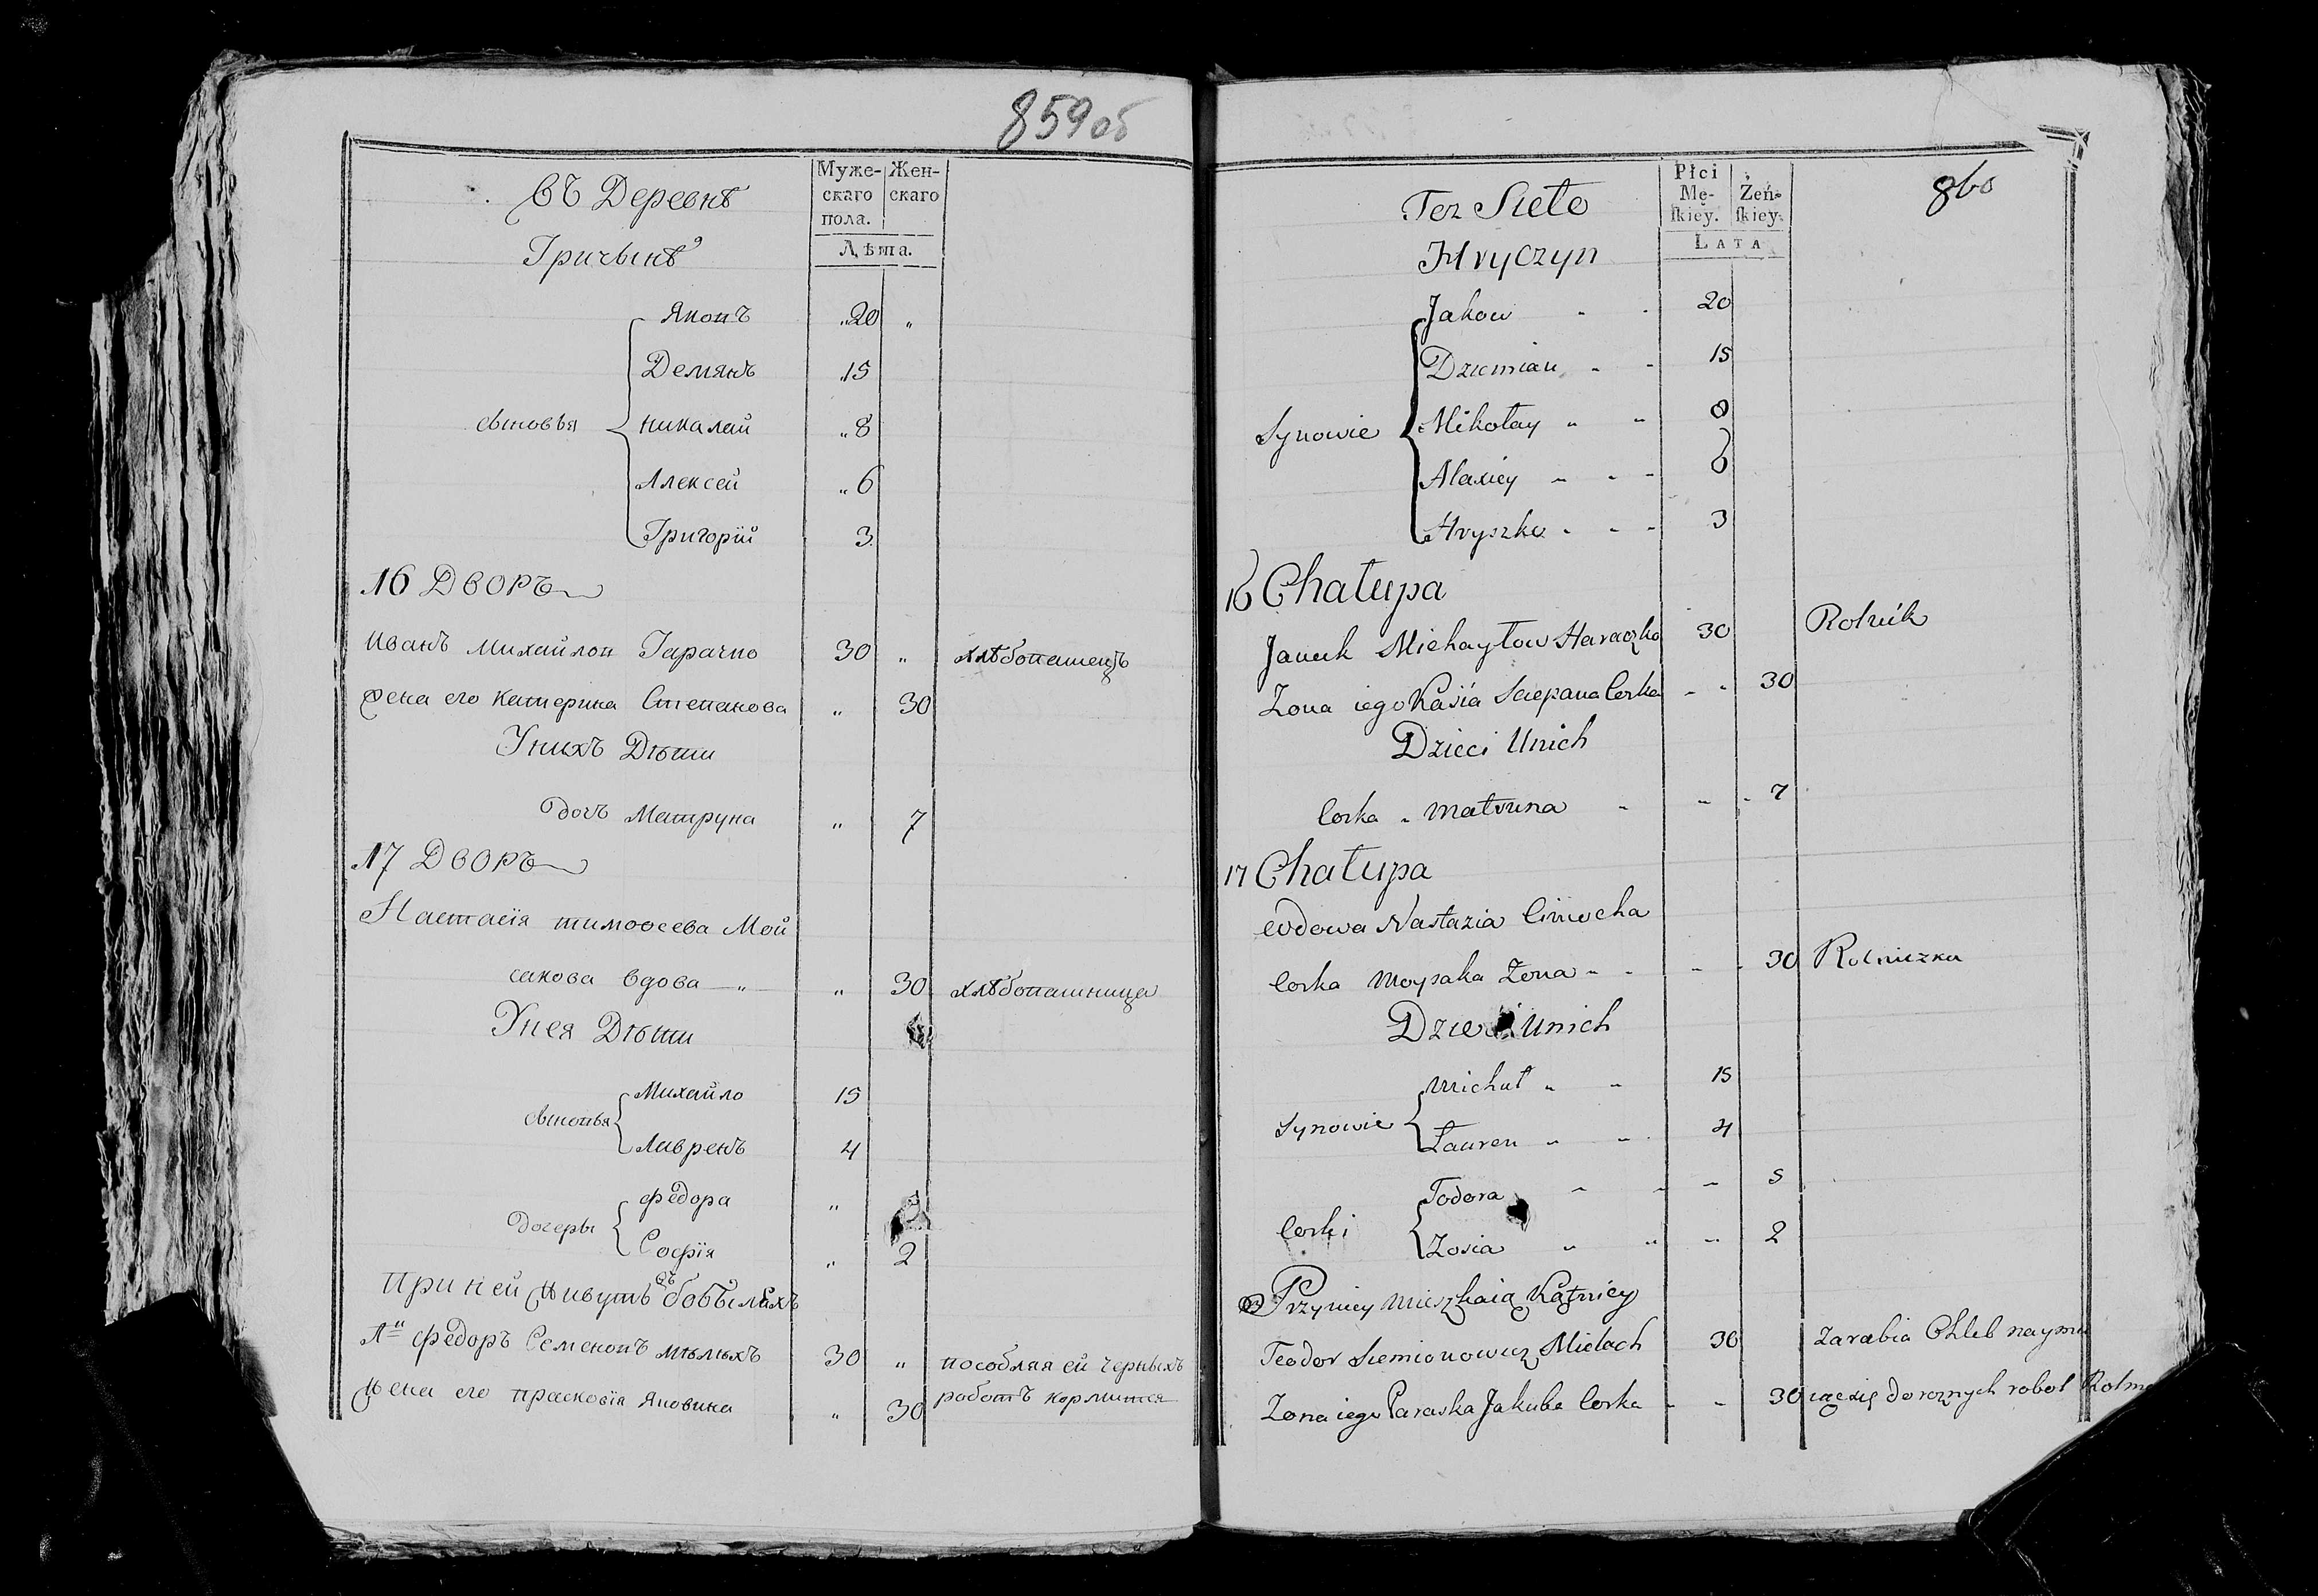 859 об
Муже-
скаго
пола.
Жен-
скаго
Лѣта.
Въ Деревнѣ
Гричынѣ
Яковъ „20 „
Демянъ „15
сыновья Николай „8
Алексей „6
Григорїй 3
16 Дворъ
Иванъ Михайлов Гарачко 30 „ хлѣбопашецъ
Жена его Катерина Степанова „ 30
Унихъ Дѣти
дочъ Матруна „ 7
17 Дворъ
Настасїя тимофеева Мой
сакова вдова „ „ 30 хлѣбопашница
Унея Дѣти
Михайло 15
сыновья
Лавренъ 4
федора „
дочеры
Софїя „ 2
При ней живутъ въ бобыляхъ
Федоръ Семеновъ мѣлѣхъ 30 „ пособляя ей черныхъ
Жена его прасковїя Яковина „ 30 работъ кормится
860
Płci
Mę-
ſkiey.
Żeń-
ſkiey.
LATA
Tez Sieło
Hryczyn
Jakow 20
Dziemian 15
Synowie Mikołay 8
Alaxiey 6
Hryszko 3
16 Chałupa
Janek Michayłow Haraczko 30 Rolnik
Zona iego Kasia Sciepana Corka 30
Dzieci Unich
Corka Matruna 7
17 Chałupa
Wdowa Nastazia Cimocha
Corka Moysaka Zona 30 Rolniczka
Dzieci Unich
Michał 15
Synowie
Łauren 4
Todora 5
Corki
Zosia 2
Przyniey Mieszkaią Kątnicy
Teodor Siemionowicz Mielach 30 Zarabia Chleb naymu
Zona iego Paraska Jakuba Corka 30 iąc się do roznych robot